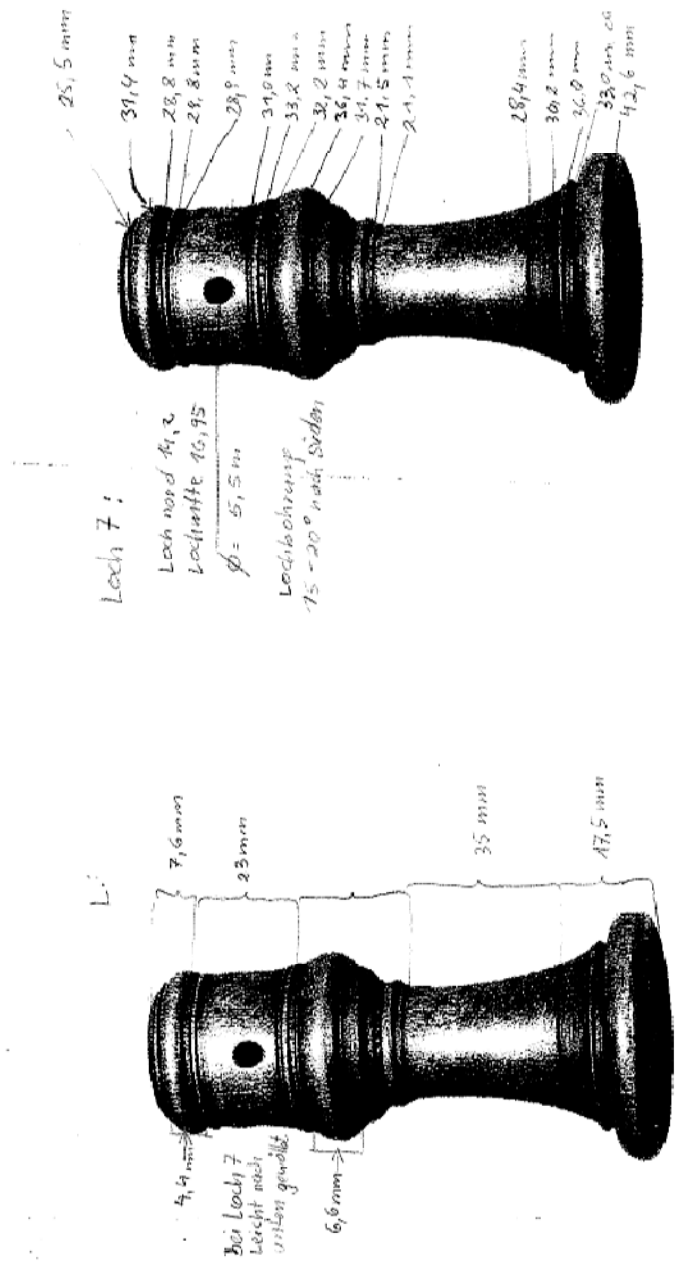 25,5 mm
31,4 mm
28,8 mm
29,8 mm
28,9 mm
31,0 mm
33,2 mm
32,2 mm
36,4 mm
31,7 mm
21,5 mm
21,1 mm
28,4 mm
30,2 mm
36,0 mm
33,0 mm ca
42,6 mm
Loch 7:
Loch nord 14,2
Lochmitte 16,95
Ø = 5,5 m
Lochbohrung
15-20° nach Süden
L:
7,6 mm
23 mm
35 mm
17,5 mm
4,4 mm
Bei Loch 7
Leicht nach
unten gewölbt
6,6 mm